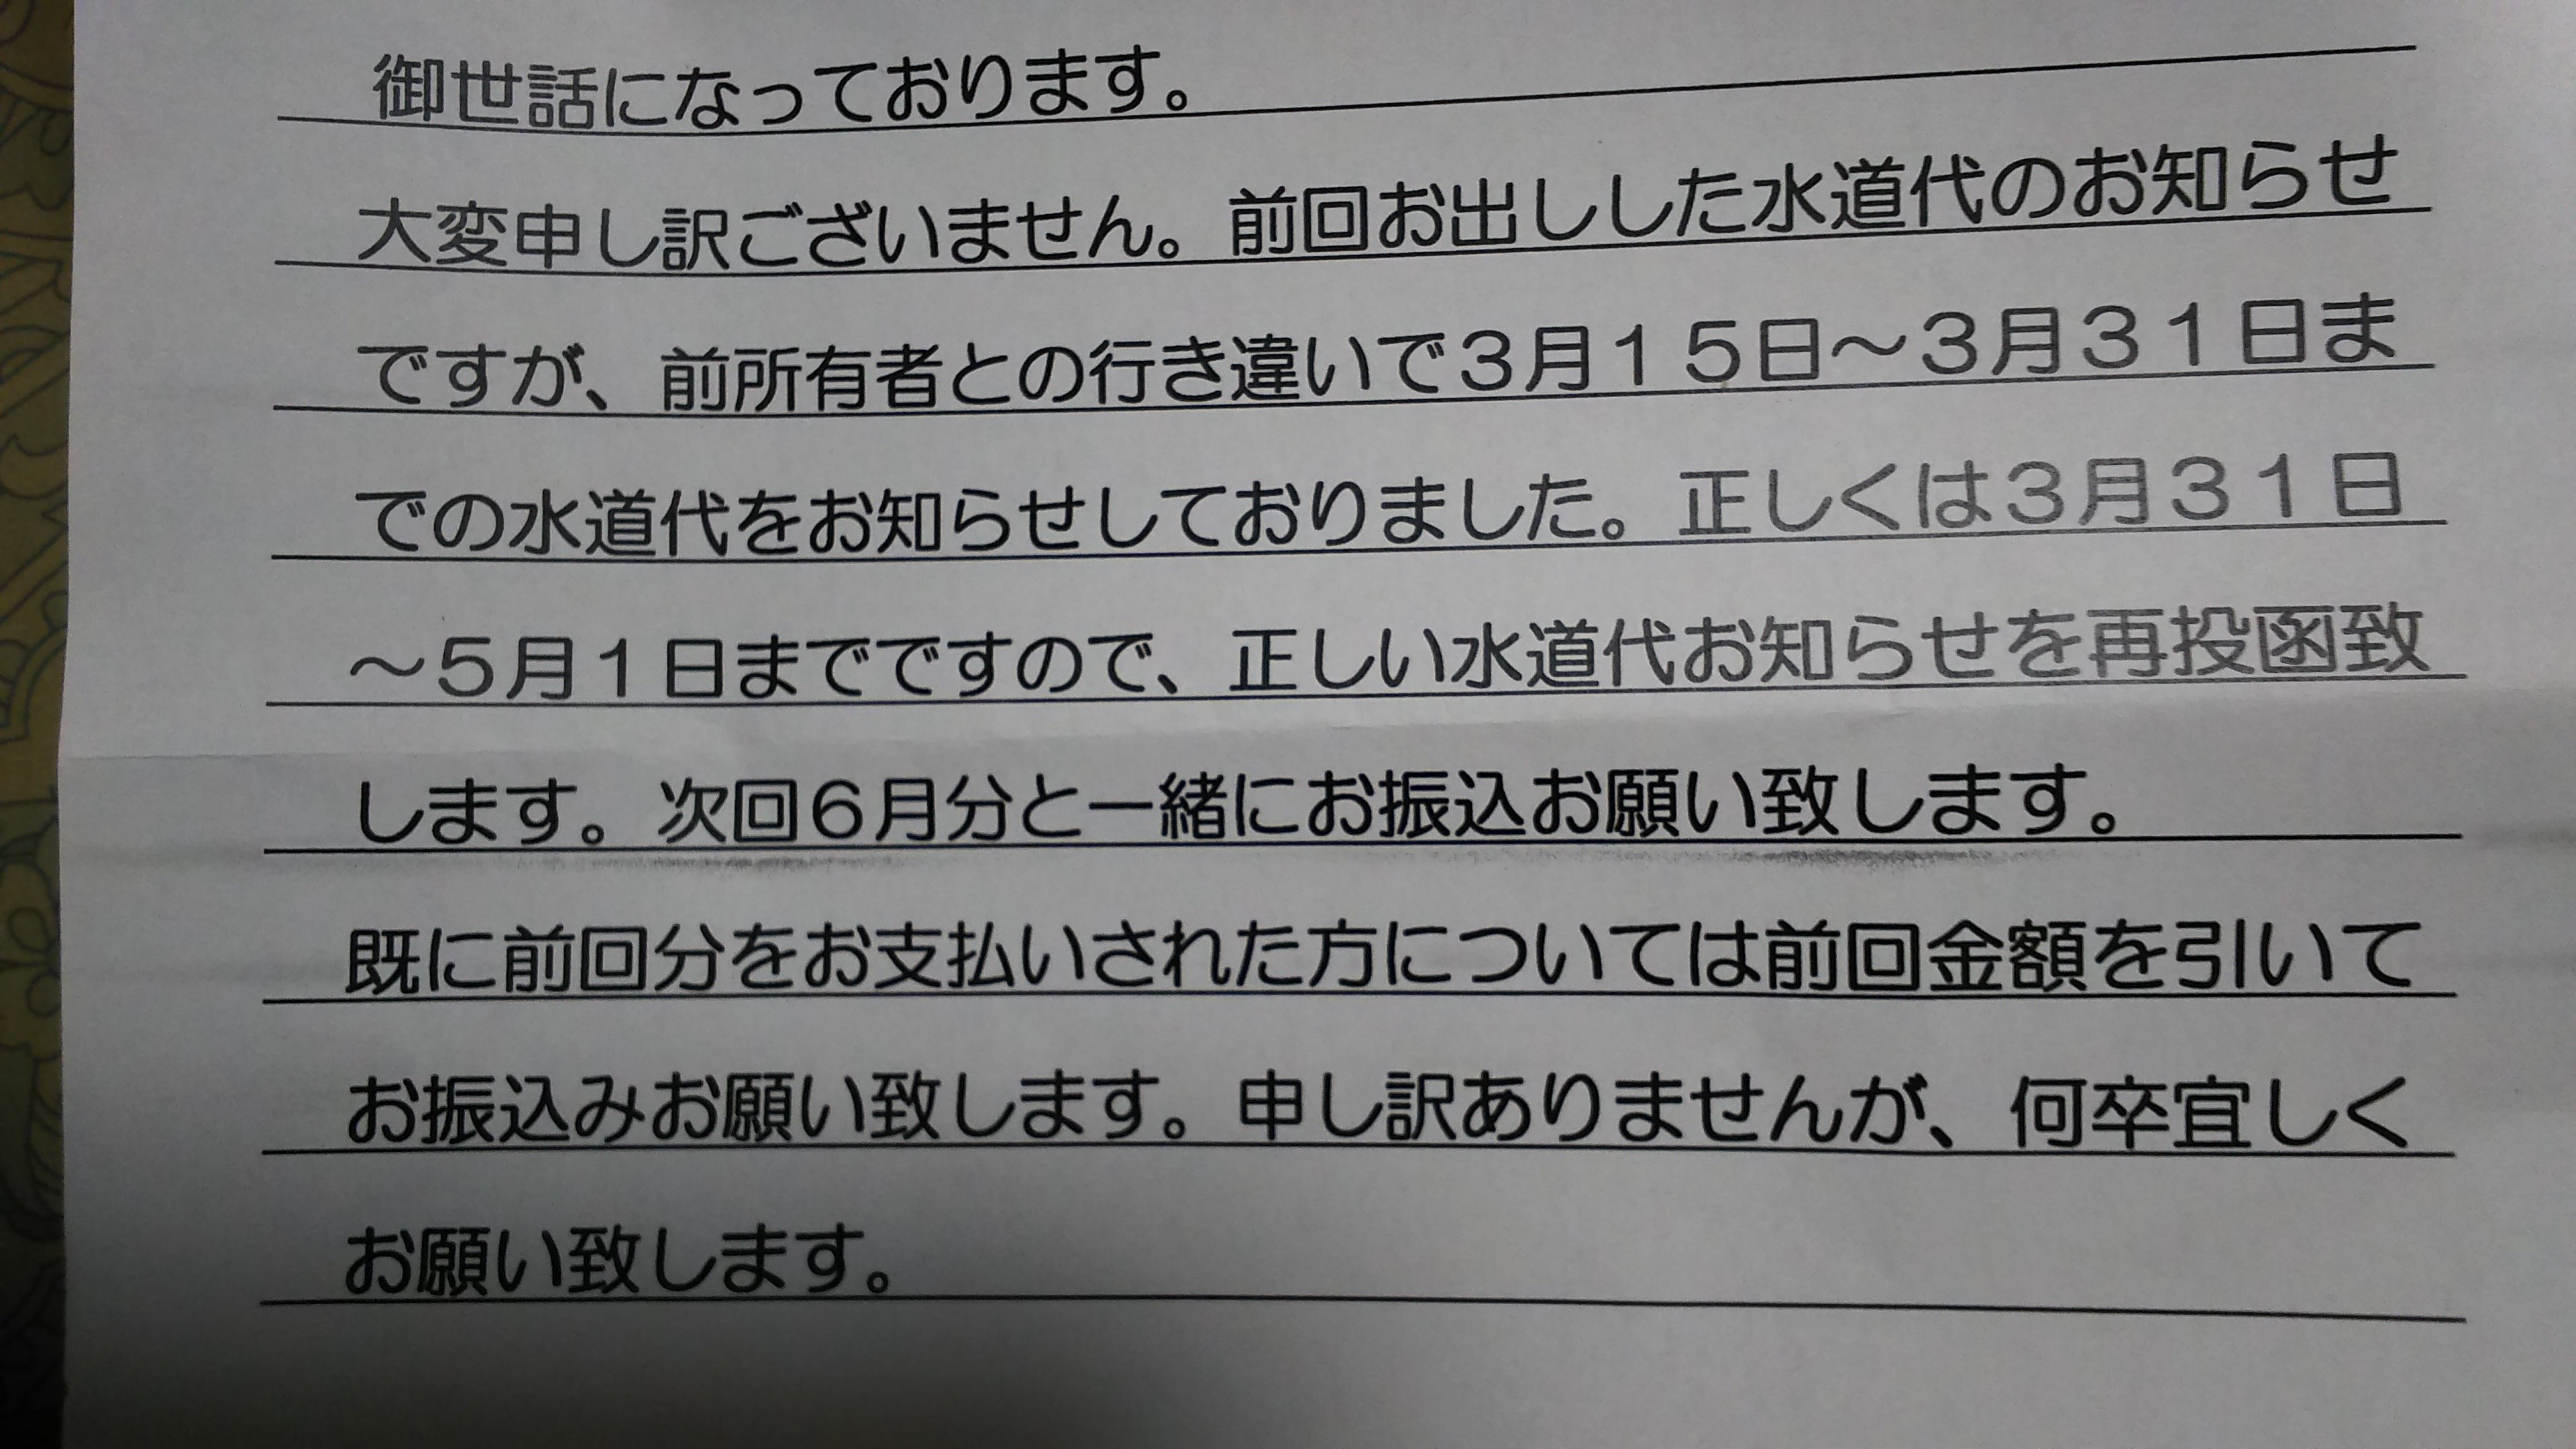 御世話になっております。
大変申し訳ございません。前回お出しした水道代のお知らせ
ですが、前所有者との行き違いで３月１５日～３月３１日ま
での水道代をお知らせしておりました。正しくは３月３１日
～５月１日までですので、正しい水道代お知らせを再投函致
します。次回６月分と一緒にお振込お願い致します。
既に前回分をお支払いされた方については前回金額を引いて
お振込みお願い致します。申し訳ありませんが、何卒宜しく
お願い致します。